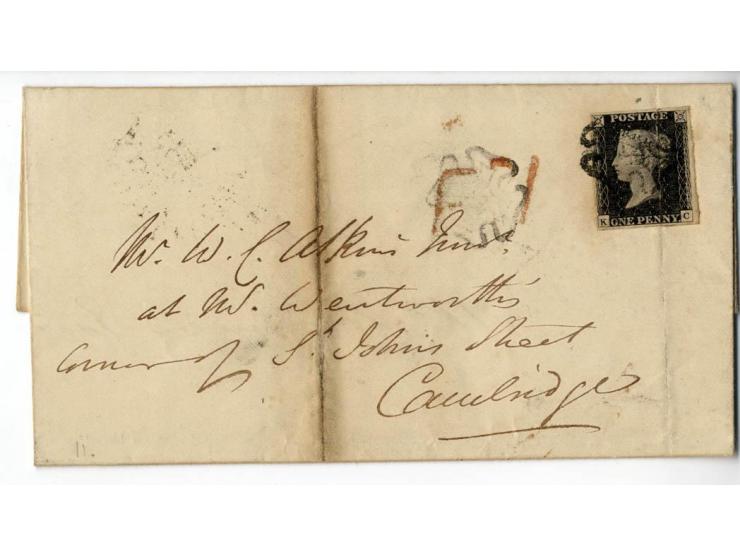 POSTAGE
K ONE PENNY C
Mr. W. C. Atkins Junr.
at Mr. Wentworth's
corner of St. Johns Street
Cambridge
11.